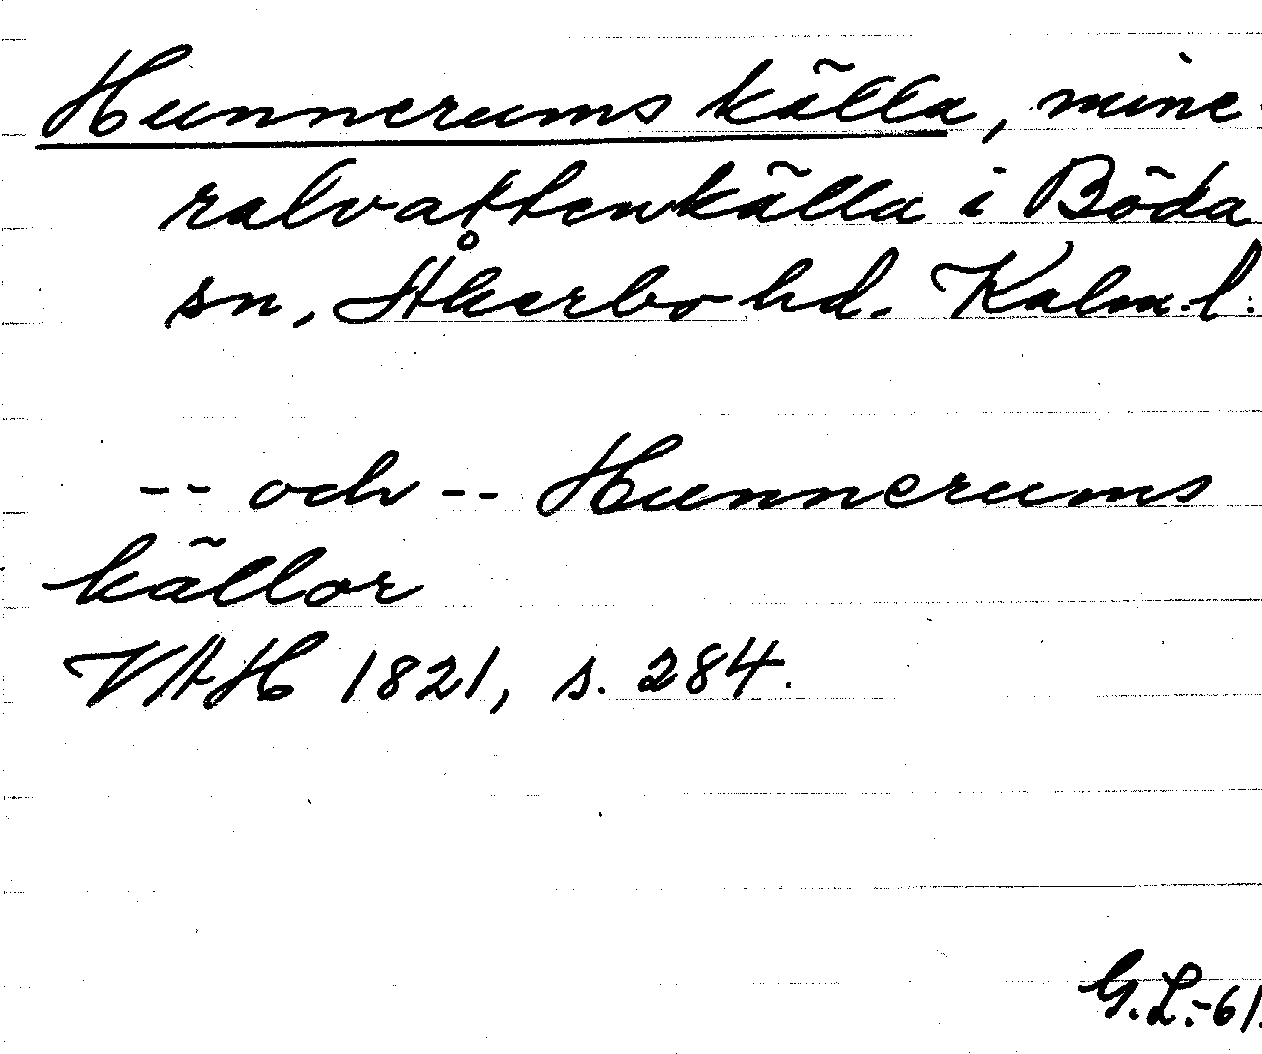 Hunnerums källa, mine-
ralvattenkälla i Böda
sn, Åkerbo hd. Kalm.l.
-- och -- Hunnerums
källor
VAH 1821, s. 284.
G.L.-61.